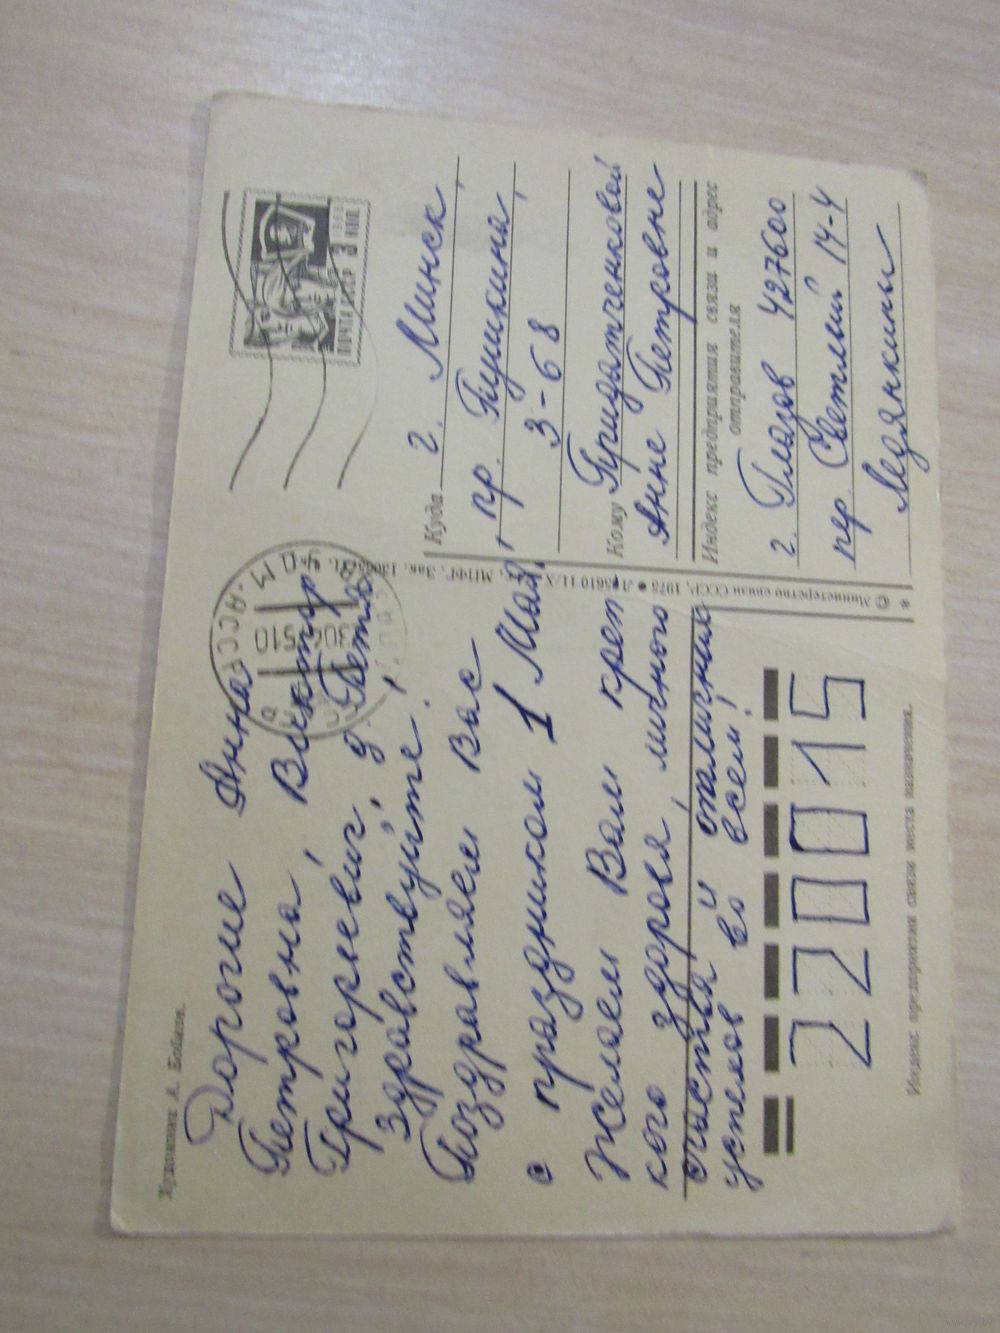 Художник А. Бабин.
Дорогие Анна
Петровна, Виктор
Григорьевич, Петя
Здравствуйте!
Поздравляем Вас
с праздником 1 Мая,
Желаем Вам креп
кого здоровья, личного
счастья и отличных
успехов во всем!
220015
Индекс предприятия связи места назначения.
© Министерство связи СССР, 1975
МПФГ. Зак.
ПОЧТА СССР 3 КОП. 1966
Куда г. Минск,
пр. Пушкина,
3-68
Кому Придатченковой
Анне Петровне
Индекс предприятия связи и адрес
отправителя
г. Глазов 427600
пер. Светлый 14-4
Ледянкины